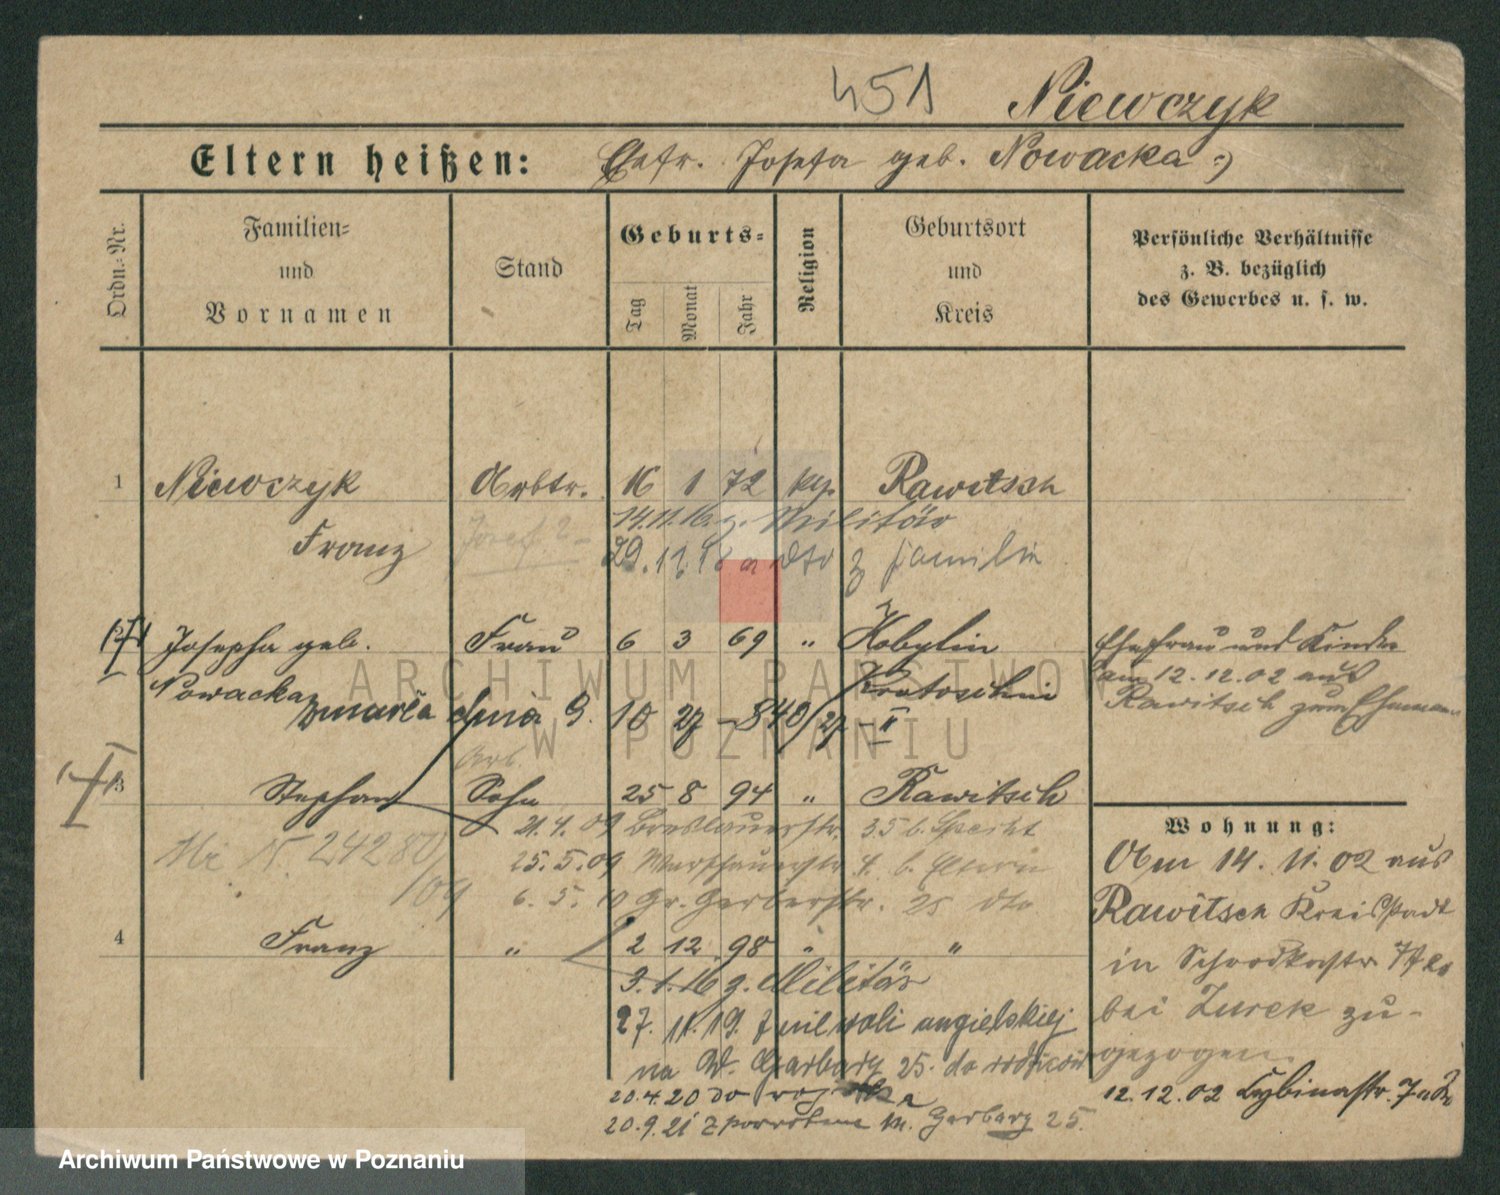 451 Niewczyk
Eltern heißen: Josefa geb. Nowacka
Ordn.-Nr.
Familien-
und
Vornamen
Stand
Geburts-
Tag
Monat
Jahr
Religion
Geburtsort
und
Kreis
Persönliche Verhältnisse
z. B. bezüglich
des Gewerbes u. s. w.
1 Niewczyk Arbtr. 16 1 72 Rawitsch
14.11.16. z. Militär
Franz 29.11.18 dto z familie
Josepha geb. Frau 6 3 69 " Kobylin Ehefrau und Kinder
am 12.12.02 aus
Nowacka Krotoschin Rawitsch zum Ehemann
zmarła dnia 9. 10
3 Stephan Sohn 25 8 94 " Rawitsch
21.4.09 Breslauerstr. 35 b. Specht
N. 24280/09 25.5.09 4. b. Eltern
6.5.10 Gr. Gerberstr. 25 dto
4 Franz " 2 12 98 " "
3.1.16 z. Militär
27.11.19. z niewoli angielskiej
na W. Garbary 25. do rodziców
20.4.20 do wojska
20.9.21 z powrotem W. Garbary 25.
Wohnung:
Am 14. 11. 02 aus
Rawitsch Kreisstadt
in
bei Zurek zu-
gezogen.
12.12.02 Cybinastr.
ARCHIWUM PAŃSTWOWE
W POZNANIU
Archiwum Państwowe w Poznaniu